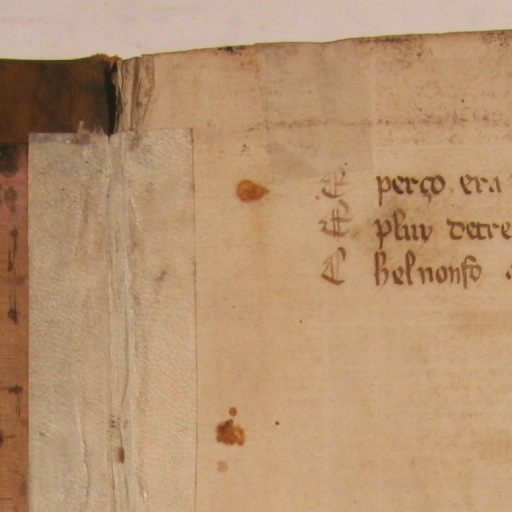 E perço era
E pluy detre
E hel nonfo